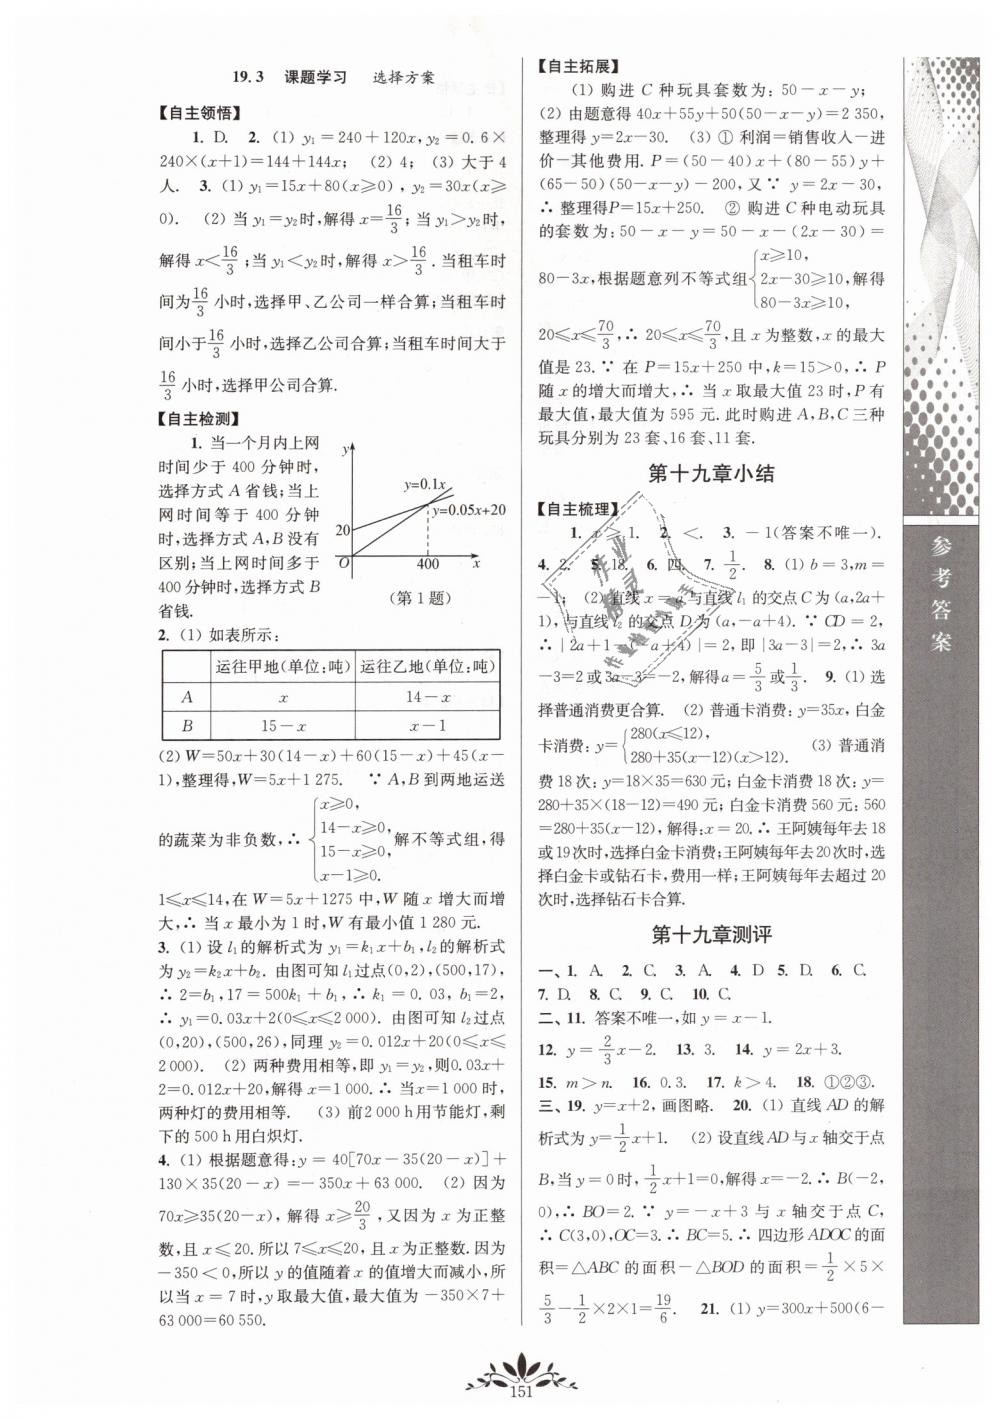 19.3 课题学习 选择方案
【自主领悟】
1. D. 2. (1) y₁=240+120x, y₂=0.6×
240×(x+1)=144+144x; (2) 4; (3) 大于 4
人. 3. (1) y₁=15x+80(x≥0), y₂=30x(x≥
0). (2) 当 y₁=y₂时,解得 x=16/3;当 y₁>y₂时,
解得 x<16/3;当 y₁<y₂时,解得 x>16/3.当租车时
间为16/3小时,选择甲、乙公司一样合算;当租车时
间小于16/3小时,选择乙公司合算;当租车时间大于
16/3小时,选择甲公司合算.
【自主检测】
1. 当一个月内上网
时间少于 400 分钟时,
选择方式 A 省钱;当上
网时间等于 400 分钟
时,选择方式 A,B 没有
区别;当上网时间多于
400 分钟时,选择方式 B
省钱.
y
y=0.1x
y=0.05x+20
20
O 400 x
(第 1 题)
2. (1) 如表所示:
运往甲地(单位:吨) 运往乙地(单位:吨)
A x 14-x
B 15-x x-1
(2) W=50x+30(14-x)+60(15-x)+45(x-
1),整理得,W=5x+1 275. ∵ A,B 到两地运送
的蔬菜为非负数,∴ {x≥0, 14-x≥0, 15-x≥0, x-1≥0. 解不等式组,得
1≤x≤14,在 W=5x+1275 中,W 随 x 增大而增
大,∴ 当 x 最小为 1 时,W 有最小值 1 280 元.
3. (1) 设 l₁的解析式为 y₁=k₁x+b₁,l₂的解析式
为 y₂=k₂x+b₂. 由图可知 l₁过点(0,2),(500,17),
∴ 2=b₁,17=500k₁+b₁,∴ k₁=0.03,b₁=2,
∴ y₁=0.03x+2(0≤x≤2 000). 由图可知 l₂过点
(0,20),(500,26),同理 y₂=0.012x+20(0≤x≤
2 000). (2) 两种费用相等,即 y₁=y₂,则0.03x+
2=0.012x+20,解得 x=1 000.∴ 当x=1 000 时,
两种灯的费用相等. (3) 前2 000 h用节能灯,剩
下的 500 h用白炽灯.
4. (1) 根据题意得:y=40[70x-35(20-x)]+
130×35(20-x)=-350x+63 000. (2) 因为
70x≥35(20-x),解得 x≥20/3,又因为 x 为正整
数,且 x≤20.所以 7≤x≤20,且 x 为正整数.因为
-350<0,所以 y 的值随着 x 的值增大而减小,所
以当 x=7 时,y 取最大值,最大值为 -350×7+
63 000=60 550.
【自主拓展】
(1) 购进 C 种玩具套数为:50-x-y;
(2) 由题意得 40x+55y+50(50-x-y)=2 350,
整理得 y=2x-30. (3) ① 利润=销售收入-进
价-其他费用. P=(50-40)x+(80-55)y+
(65-50)(50-x-y)-200,又∵ y=2x-30,
∴ 整理得P=15x+250. ② 购进 C 种电动玩具
的套数为:50-x-y=50-x-(2x-30)=
80-3x,根据题意列不等式组{x≥10, 2x-30≥10, 80-3x≥10, 解得
20≤x≤70/3,∴ 20≤x≤70/3,且 x 为整数,x 的最大
值是 23.∵ 在 P=15x+250 中,k=15>0,∴ P
随 x 的增大而增大,∴ 当 x 取最大值 23 时,P 有
最大值,最大值为 595 元.此时购进 A,B,C 三种
玩具分别为 23 套、16 套、11 套.
第十九章小结
【自主梳理】
1. x>1. 2. <. 3. -1(答案不唯一).
4. 2. 5. 18. 6. 四. 7. 1/2. 8. (1) b=3,m=
-1; (2) 直线 x=a 与直线 l₁ 的交点 C 为 (a,2a+
1),与直线 l₂ 的交点 D 为 (a,-a+4). ∵ CD=2,
∴ |2a+1-(-a+4)|=2,即 |3a-3|=2,∴ 3a
-3=2 或 3a-3=-2,解得 a=5/3 或 1/3. 9. (1) 选
择普通消费更合算. (2) 普通卡消费:y=35x,白金
卡消费:y={280(x≤12), 280+35(x-12)(x>12). (3) 普通消
费 18 次:y=18×35=630 元;白金卡消费 18 次:y=
280+35×(18-12)=490 元;白金卡消费 560 元:560
=280+35(x-12),解得:x=20.∴ 王阿姨每年去 18
或 19次时,选择白金卡消费;王阿姨每年去20次时,选
择白金卡或钻石卡,费用一样;王阿姨每年去超过 20
次时,选择钻石卡合算.
第十九章测评
一、1. A. 2. C. 3. A. 4. D 5. D. 6. C.
7. D. 8. C. 9. C. 10. C.
二、11. 答案不唯一,如 y=x-1.
12. y=2/3x-2. 13. 3. 14. y=2x+3.
15. m>n. 16. 0.3. 17. k>4. 18. ①②③.
三、19. y=x+2,画图略. 20. (1) 直线 AD 的解
析式为 y=1/2x+1. (2) 设直线AD与x轴交于点
B,当 y=0 时,1/2x+1=0,解得 x=-2.∴ B(-2,
0),∴ BO=2. ∵ y=-x+3 与 x 轴交于点 C,
∴ C(3,0),OC=3.∴ BC=5.∴ 四边形ADOC的面
积=△ABC 的面积-△BOD 的面积=1/2×5×
5/3-1/2×2×1=19/6. 21. (1) y=300x+500(6-
参考答案
作业精灵
151